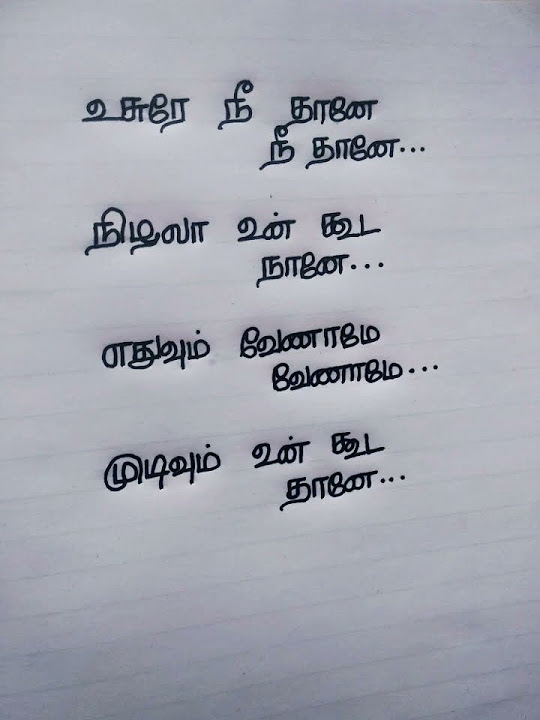 உசுரே நீ தானே
நீ தானே...
நிழலா உன் கூட
நானே...
எதுவும் வேணாமே
வேணாமே...
முடிவும் உன் கூட
தானே...